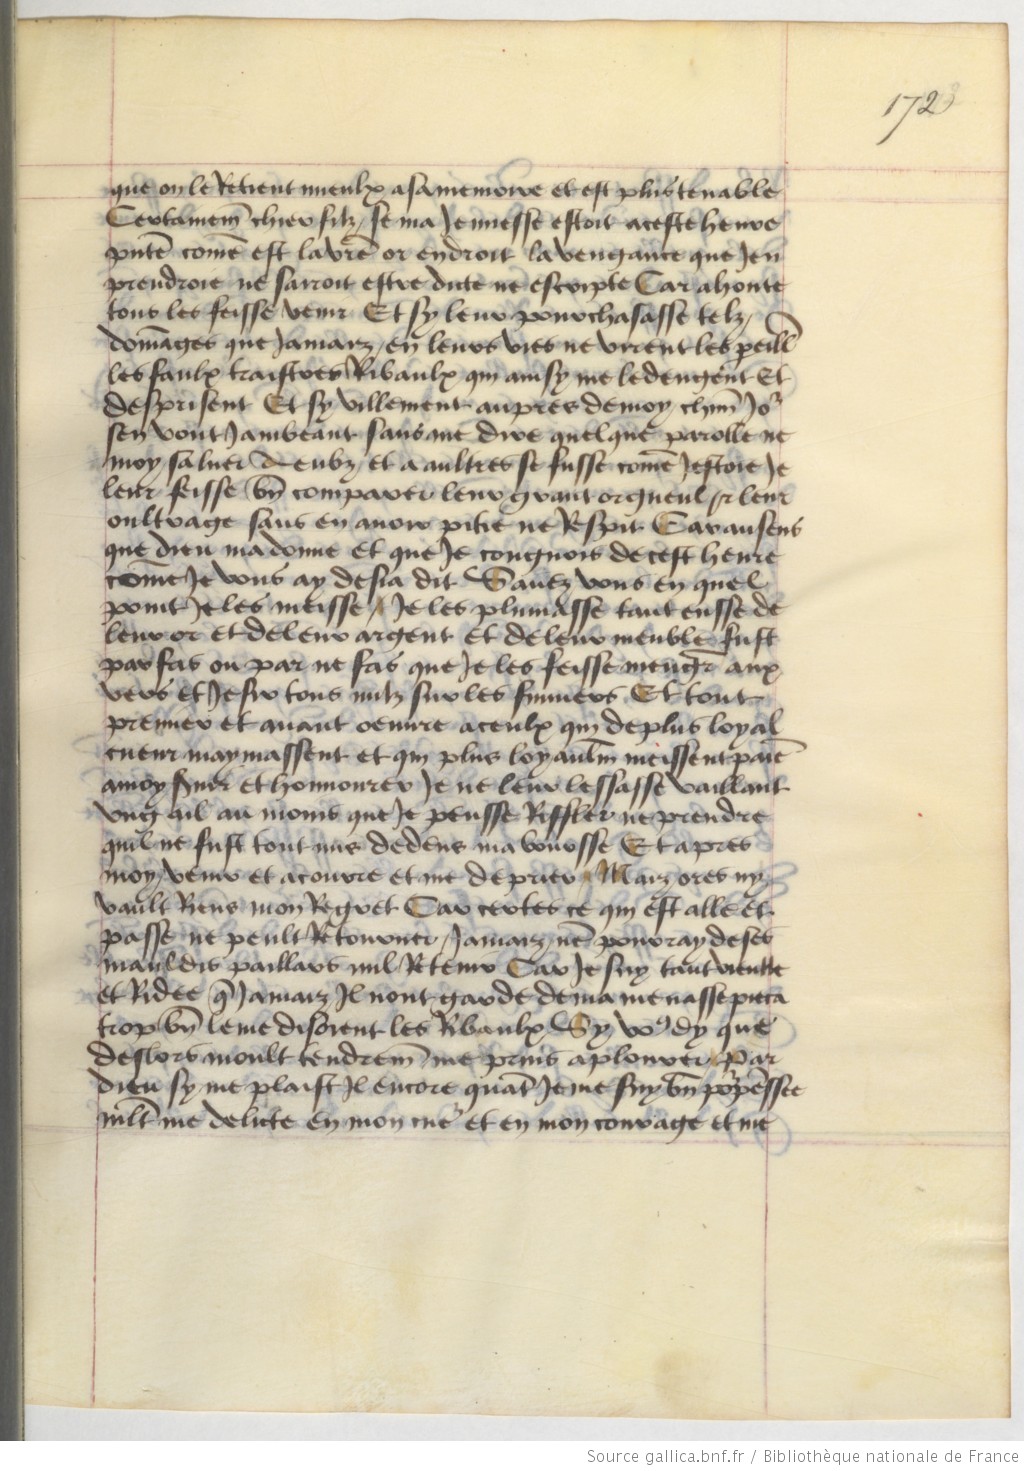 172
que on le Retient mieulx a sa memoire et est plus tenable
Certainem̃ chier filz / se ma Jennesse estoit a ceste heure
pñte come est la vrẽ or endroit la vengance que Jen
prendroie ne sarroit estre dicte ne escripte Car a honte
tous les feisse venir Et sy leur pourchasasse telz
dom̃ages que Jamaiz en leurs vies ne virrent les peill̃
les faulx traistres Ribaulx qui ainsy me ledengent Et
desprisent Et sy villement aupres de moy chũn Jo͛
sen vont Jambeant sans me dire quelque parolle ne
moy saluer A eubz et a aultres se fusse com̃e Jestoie Je
leur feisse bñ comparer leur grant orgueul & leur
oultrage sans en avoir pitie ne Respit Car au sens
que dieu ma donne et que Je congnois de cest heure
com̃e Je vous ay desia dit Savez vous en quel
point Je les meisse / Je les plumasse tant eusse de
leur or et de leur argent et de leur meuble fust
par fas ou par ne fas que Je les feisse meng̃r aux
vers et Jesir tous nulz sur les fumiers Et tout
premier et avant oeuvre a ceulx qui de plus loyal
cueur maymassent et qui plus loyaulm̃ meissent paiñe
a moy s̃vir et honnourer Je ne leur lessasse vaillant
ung ail au moins que Je peusse Riffler ne prendre
quil ne fust tout mis dedens ma boursse Et apres
moy venir et acourre et me deprier Maiz ores ny
vault Riens mon Regret Car certes ce qui est alle et
passe ne peult Retourner / Jamaiz nẽ pourray de ses
mauldis paillars nul Retenir Car Je suy tant vieulle
et Ridee q̃ Jamaiz Il nont garde de ma menasse pieca
trop bñ le me disoient les Ribaulx Sy vo⁹ dy que
deslors moult tendrem̃ me prins a plourer / Par
dieu sy me plaist Il encore quãt Je me suy bñ po͛pẽssee
ml̃t me delicte en mon cue͛ et en mon courage et me
Source gallica.bnf.fr / Bibliothèque nationale de France